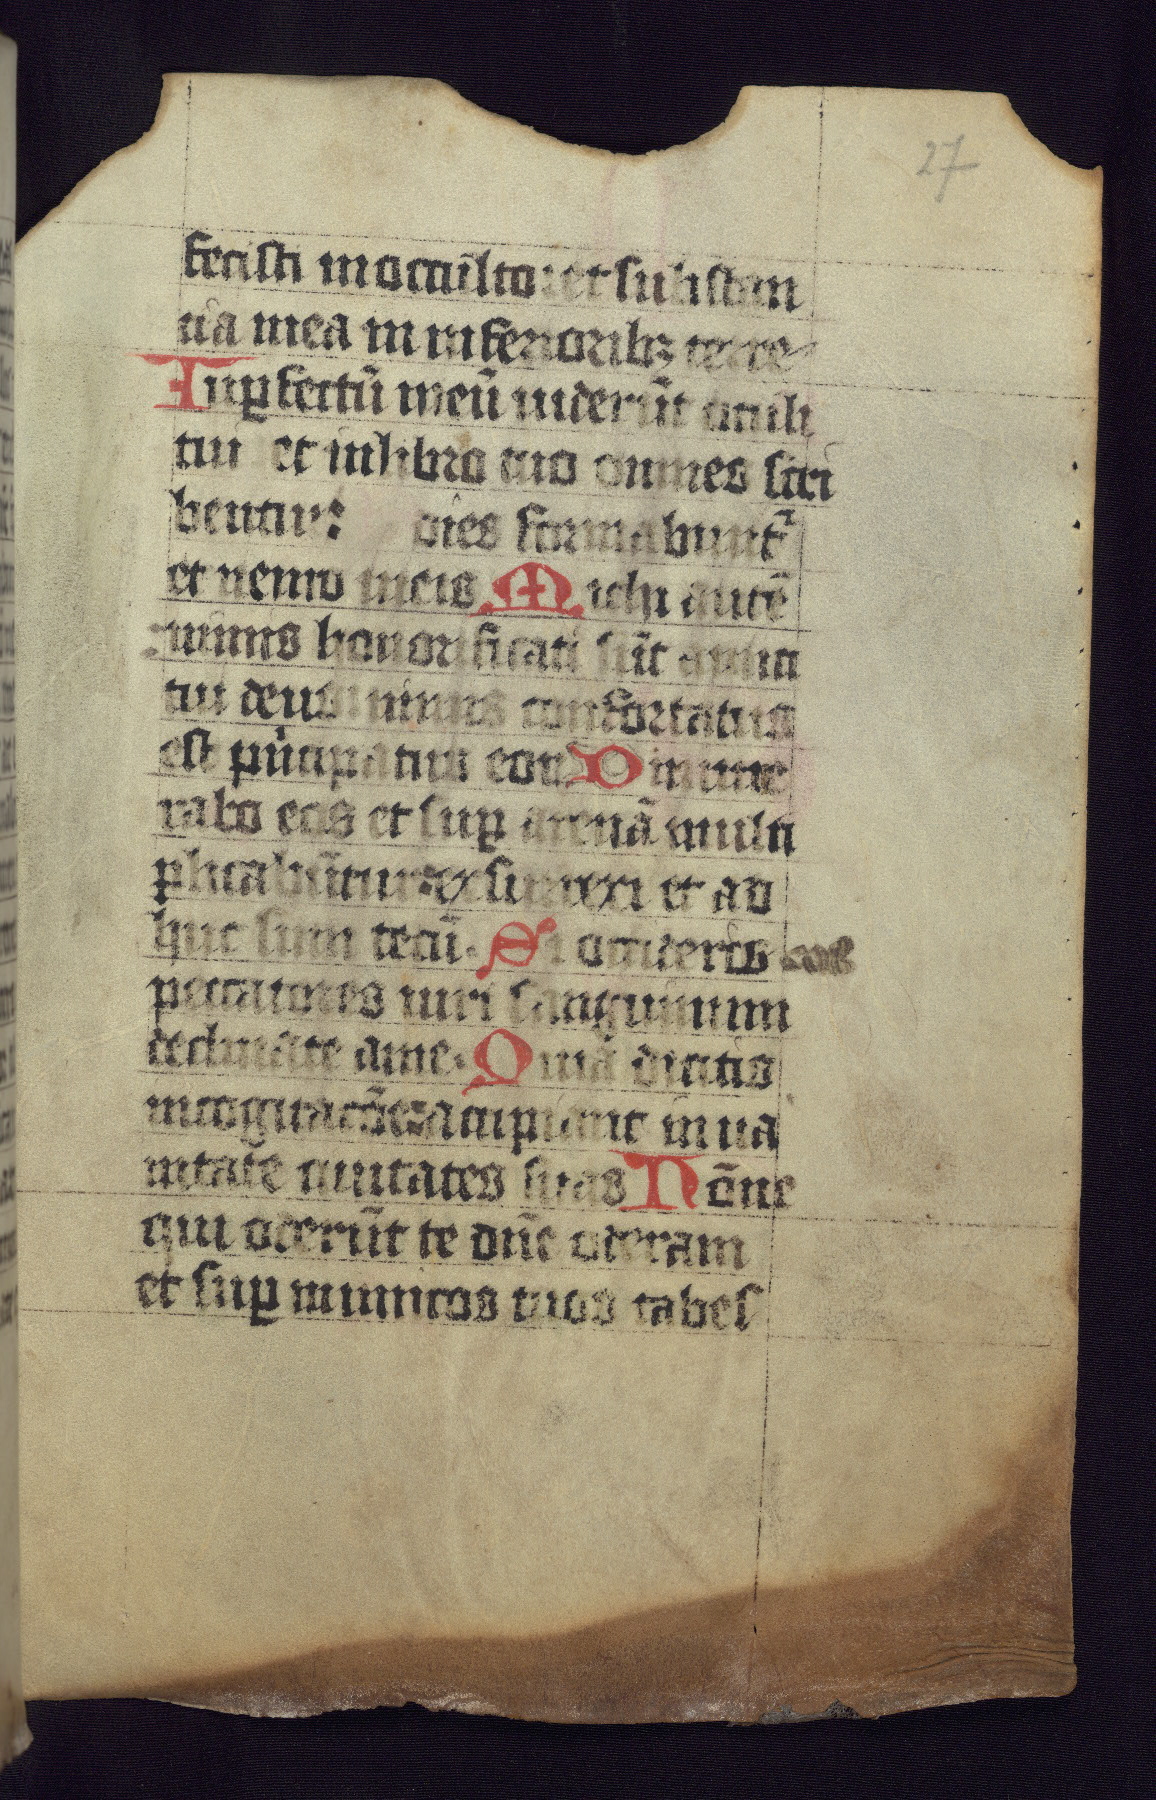 27
fecisti in occulto: et substan
cia mea in inferioribꝫ terre
Inꝑfectū meū viderūt oculi
tui et in libro tuo omnes scri
bentur: dies formabunt᷑
et nemo in eis Michi autē
nimis honorificati sūt amici
tui deus: nimis confortatus
est prīcipatus eoꝝ Dinume
rabo eos et suꝑ arenā multi
plicabūtur: exsurrexi et ad
huc sum tecū. Si occideris
peccatores viri sanguinum
declinate a me. Quia dicitis
in cogitacōe: accipiant in va
nitate civitates suas Nōne
qui oderūt te dn̄e oderam
et suꝑ inimicos tuos tabes